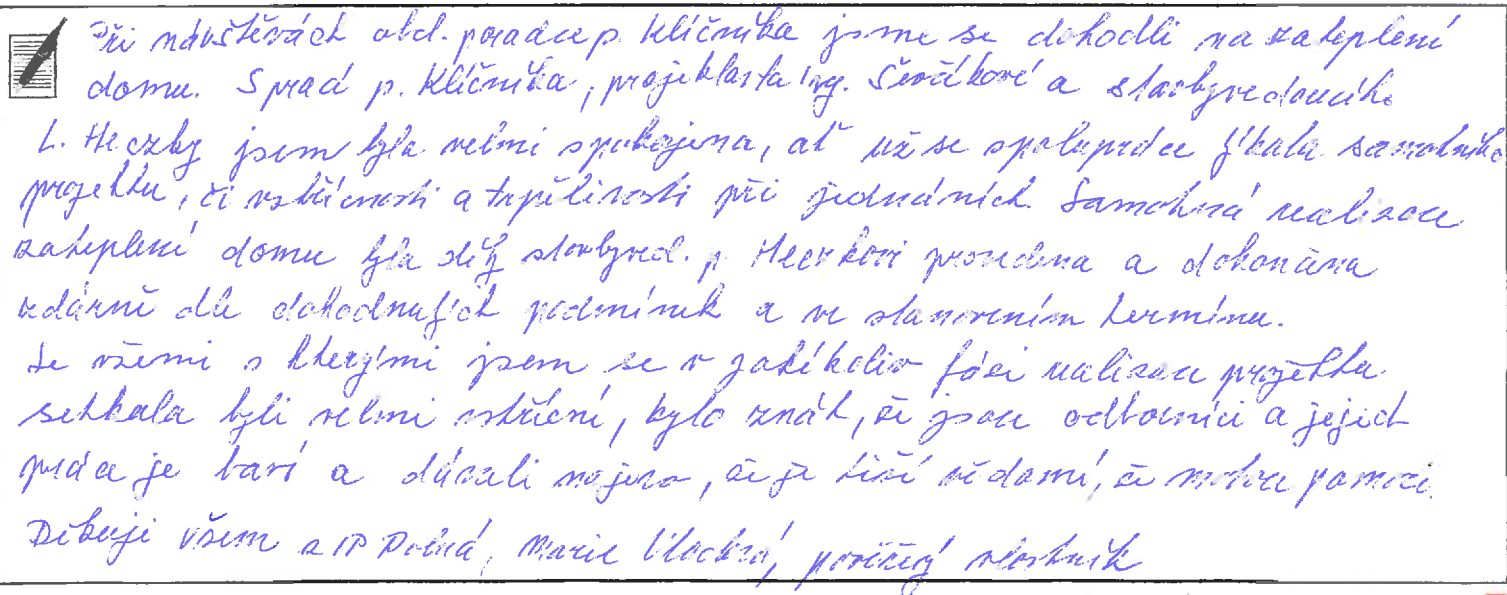 Při návštěvách obch. poradce p. Klíčníka jsme se dohodli na zateplení
domu. S prací p. Klíčníka, projektanta ing. a stavbyvedoucího
L. Heczky jsem byla velmi spokojena, ať už se spolupráce týkala samotného
projektu, či vstřícnosti a trpělivosti při jednáních. Samotná realizace
zateplení domu byla díky stavbyved. p. Heczkovi provedena a dokončena
zdárně dle dohodnutých podmínek a ve stanovením termínu.
Se všemi s kterými jsem se v jakékoliv fázi realizace projektu
setkala byli velmi vstřícní, bylo znát, že jsou odborníci a jejich
práce je baví a dávali najevo, že je těší vědomí, že mohou pomoci.
Děkuji všem z Marie vlastník